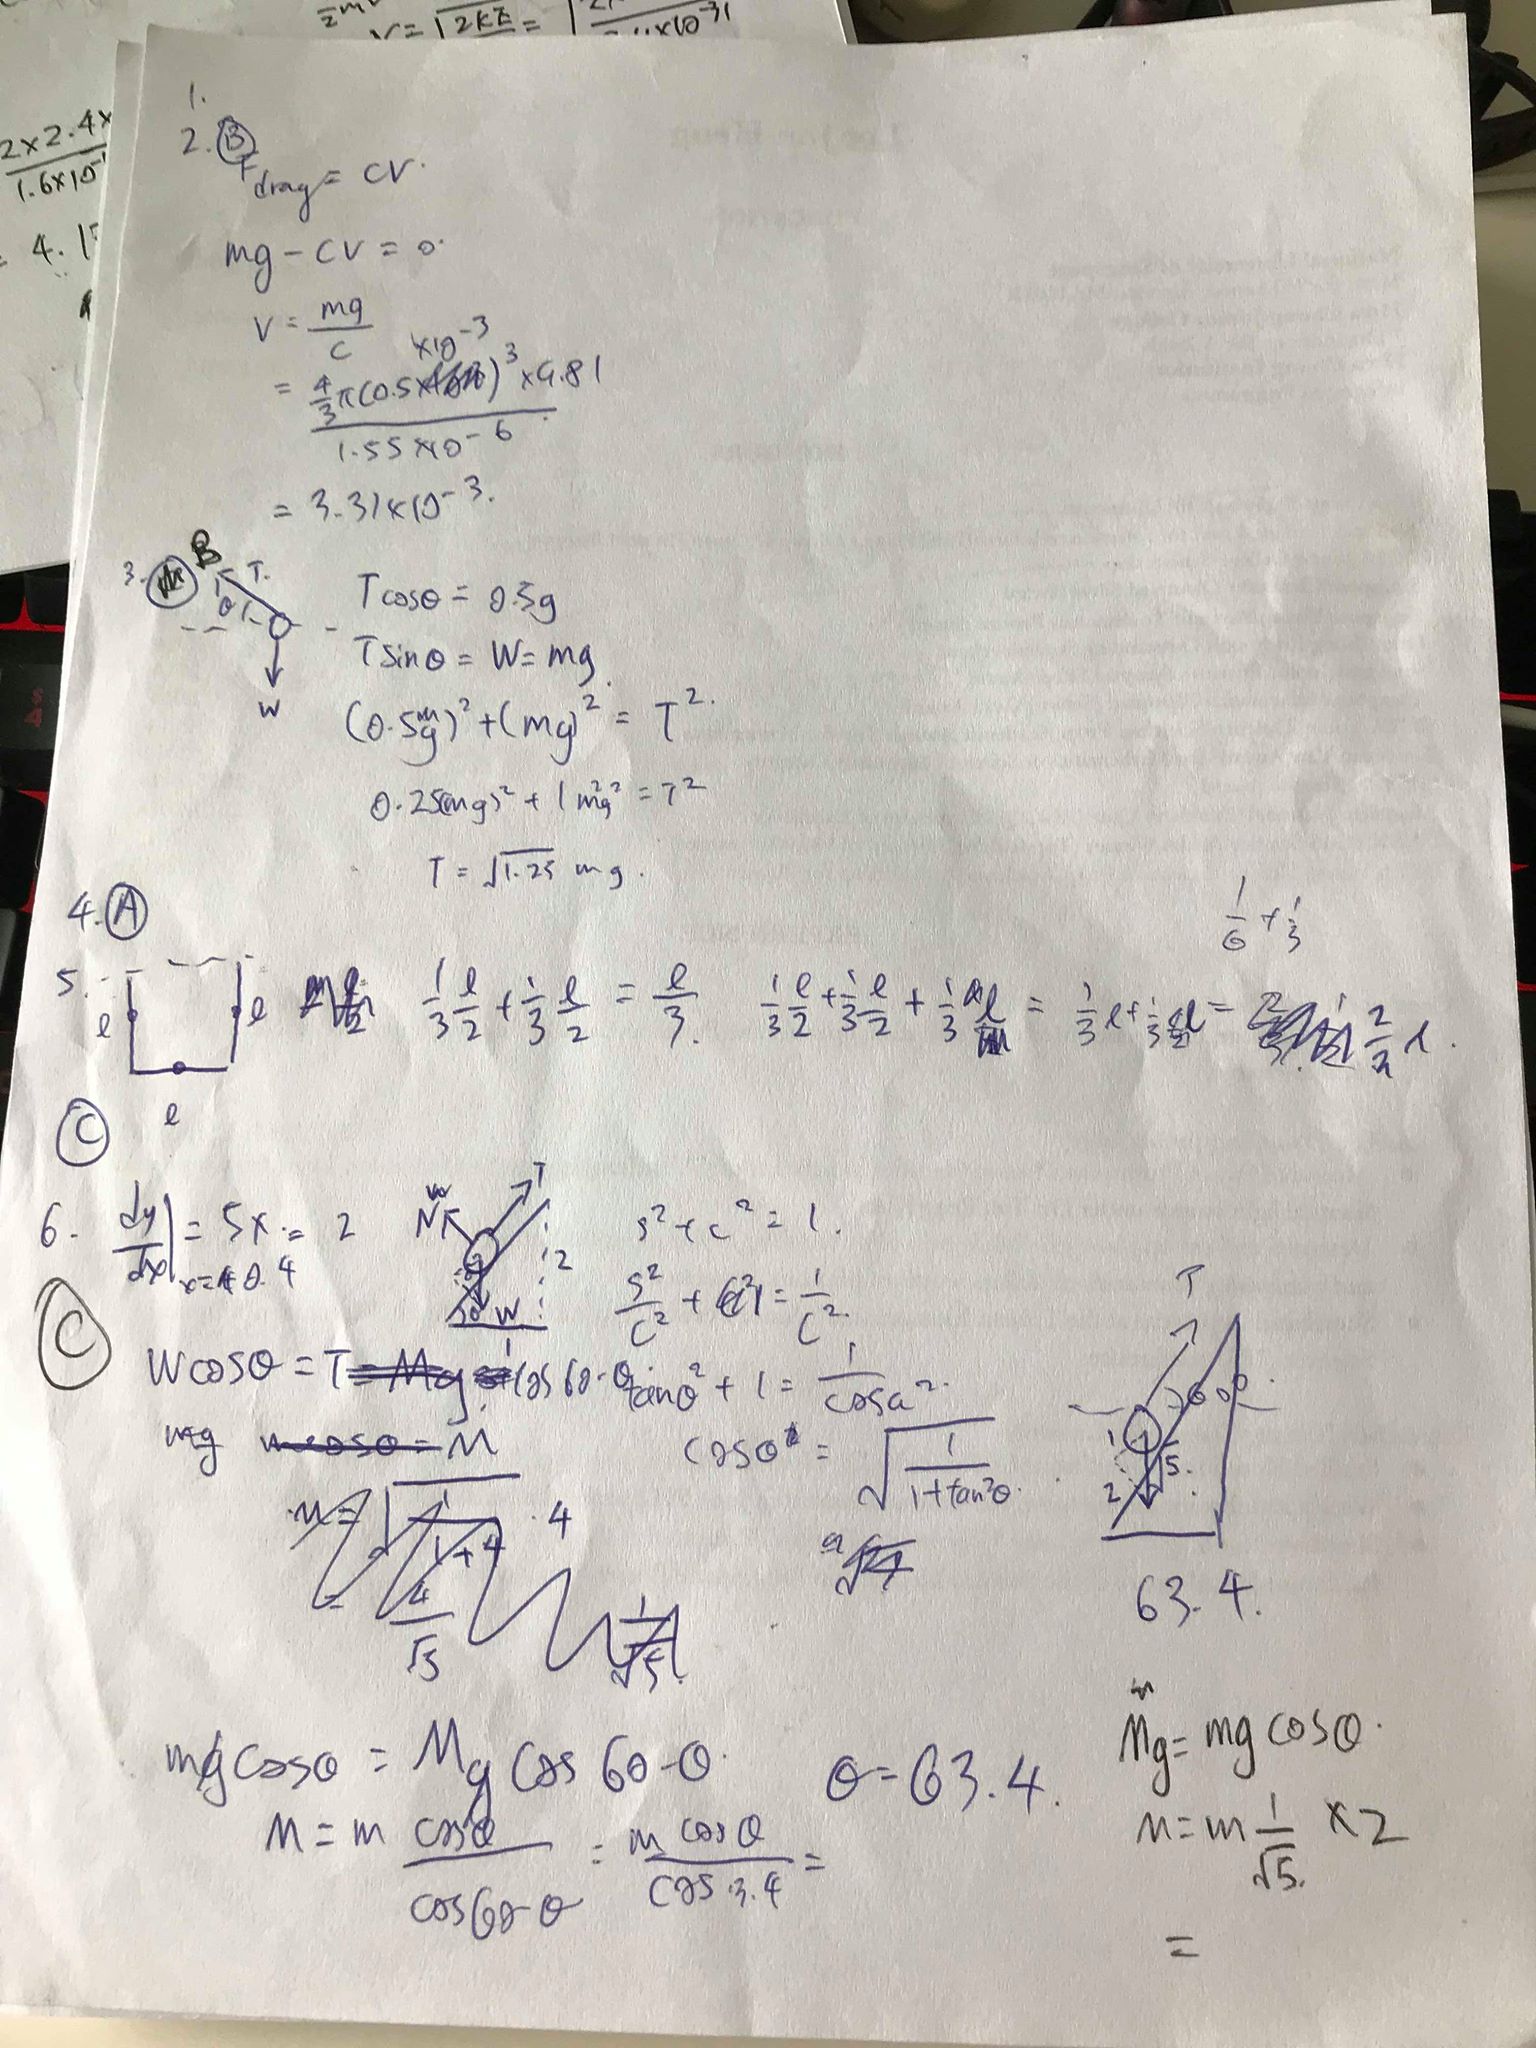 V = √2KE =
2 × 2.4×
1.6×10
= 4.1
1.
2. B
F drag = CV.
mg - CV = 0.
V = mg / C
= 4/3 π(0.5 ×10^-3)^3 × 9.81 / 1.55×10^-6
= 3.31×10^-3.
3. B
T.
θ
W
T cosθ = 0.5g
T sinθ = W = mg.
(0.5mg)² + (mg)² = T².
0.25(mg)² + 1m²g² = T²
T = √1.25 mg.
4. A
1/6 + 1/3
5.
l
l
l
1/3 l/2 + 1/3 l/2 = l/3.
1/3 l/2 + 1/3 l/2 + 1/3 l = 1/3 l + 1/3 l = 2/3 l.
C
6. dy/dx | x=0.4 = 5x = 2
N
T
W
2
1
s² + c² = 1.
s²/c² + 1 = 1/c².
C
Wcosθ = T = Mg cos 60-θ
tanθ² + 1 = 1/cosθ².
mg mcosθ = M
cosθ = √1/1+tan²θ.
M = √1/1+4 · 4
= 4/√5
1/√5
T
θ
1
2
√5.
63.4.
mgcosθ = Mg cos 60-θ.
θ = 63.4.
M = m cosθ / cos60-θ = m cosθ / cos 3.4 =
Mg = mg cosθ.
M = m 1/√5. × 2
=